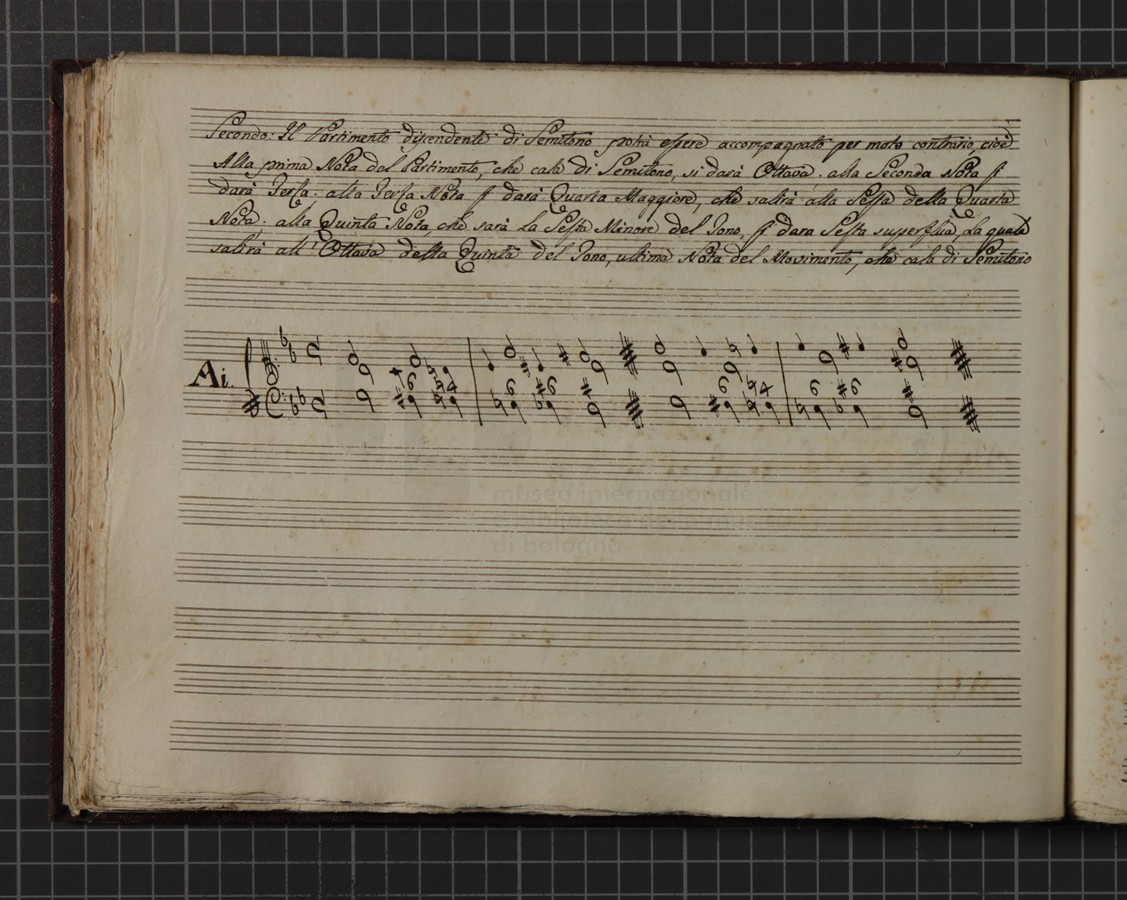 Secondo: Il Partimento discendente di Semitono potrà essere accompagnato per moto contrario, cioè
Alla prima Nota del Partimento, che cala di Semitono, si darà Ottava: alla Seconda Nota si
darà Terza: alla Terza Nota si darà Quarta Maggiore, che salirà alla Sesta della Quarta
Nota: alla Quinta Nota, che sarà la Sesta Minore del Tono, si darà Sesta superflua, la quale
salirà all'Ottava della Quinta del Tono, ultima Nota del Movimento, che cala di Semitono
Ai.
museo internazionale
e biblioteca della musica
di bologna